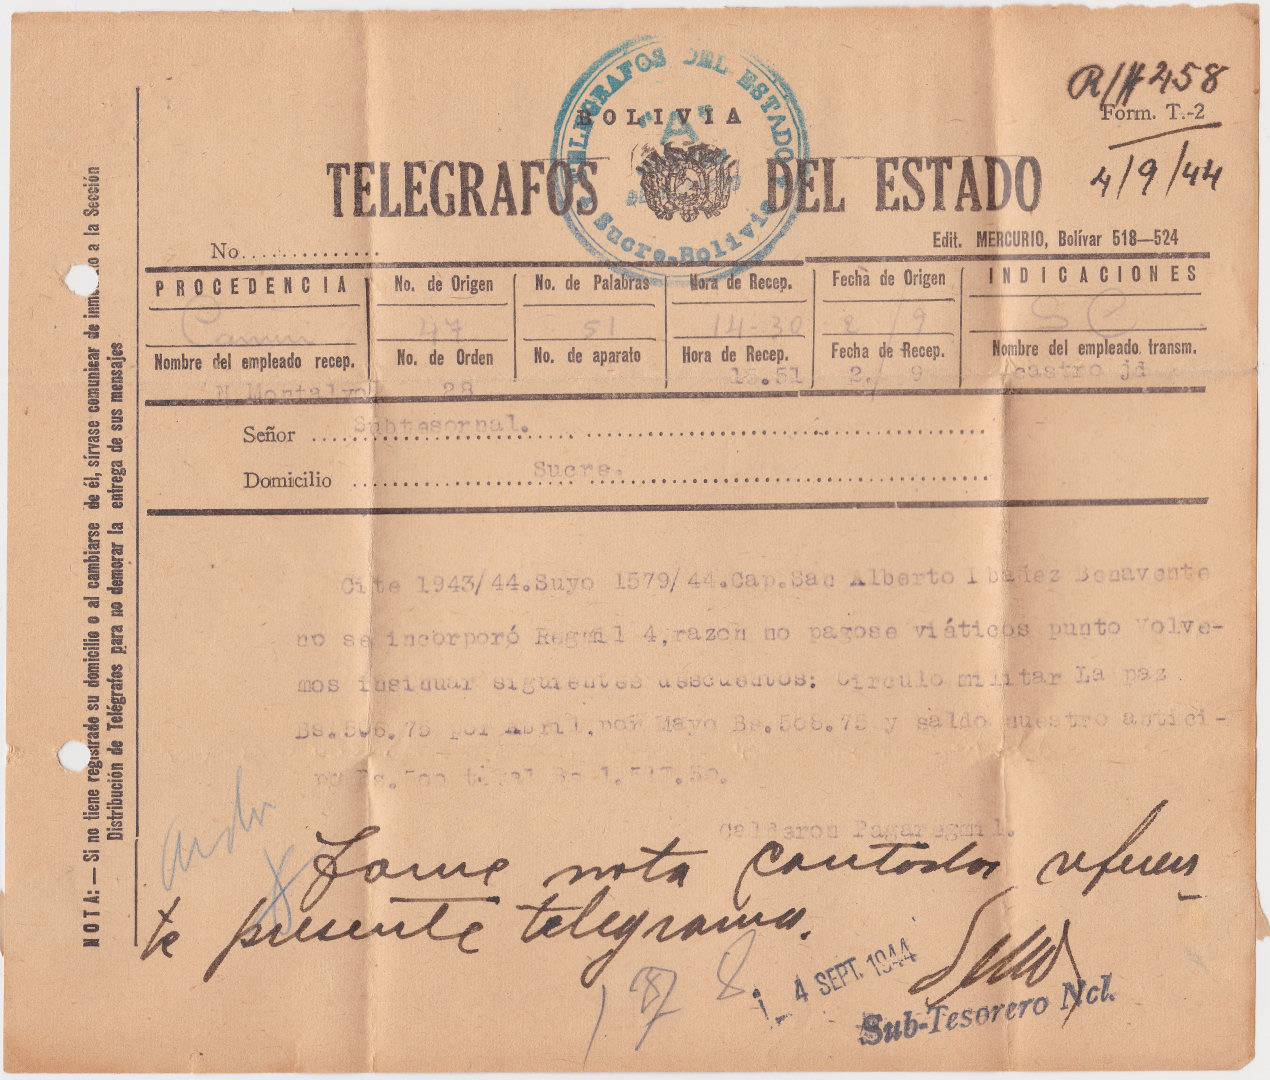 R/# 258
BOLIVIA
Form. T.-2
TELEGRAFOS DEL ESTADO
TELEGRAFOS DEL ESTADO
Sucre.-Bolivia
4/9/44
Edit. MERCURIO, Bolívar 518—524
No.
PROCEDENCIA No. de Origen No. de Palabras Hora de Recep. Fecha de Origen INDICACIONES
Camiri 47 51 14-30 2/9 SC
Nombre del empleado recep. No. de Orden No. de aparato Hora de Recep. Fecha de Recep. Nombre del empleado transm.
N Montalvo 28 15.51 2/9 castro jd
Señor Subtesornal.
Domicilio Sucre.
Cite 1943/44.Suyo 1579/44.Cap.San Alberto Ibañez Benavente
no se incorporó Regmil 4,razon no pagose viáticos punto Volve-
mos insinuar siguientes descuentos: Circulo militar La paz
Bs.508.75 por Abril, por Mayo Bs.508.75 y saldo nuestro antici-
po Bs.500 total Bs 1.517.50.
Calderon Pagaregmil.
Tome nota
te presente telegrama.
4 SEPT. 1944
Sub-Tesorero Ncl.
NOTA: — Si no tiene registrado su domicilio o al cambiarse de él, sírvase comunicar de a la Sección
Distribución de Telégrafos para no demorar la entrega de sus mensajes